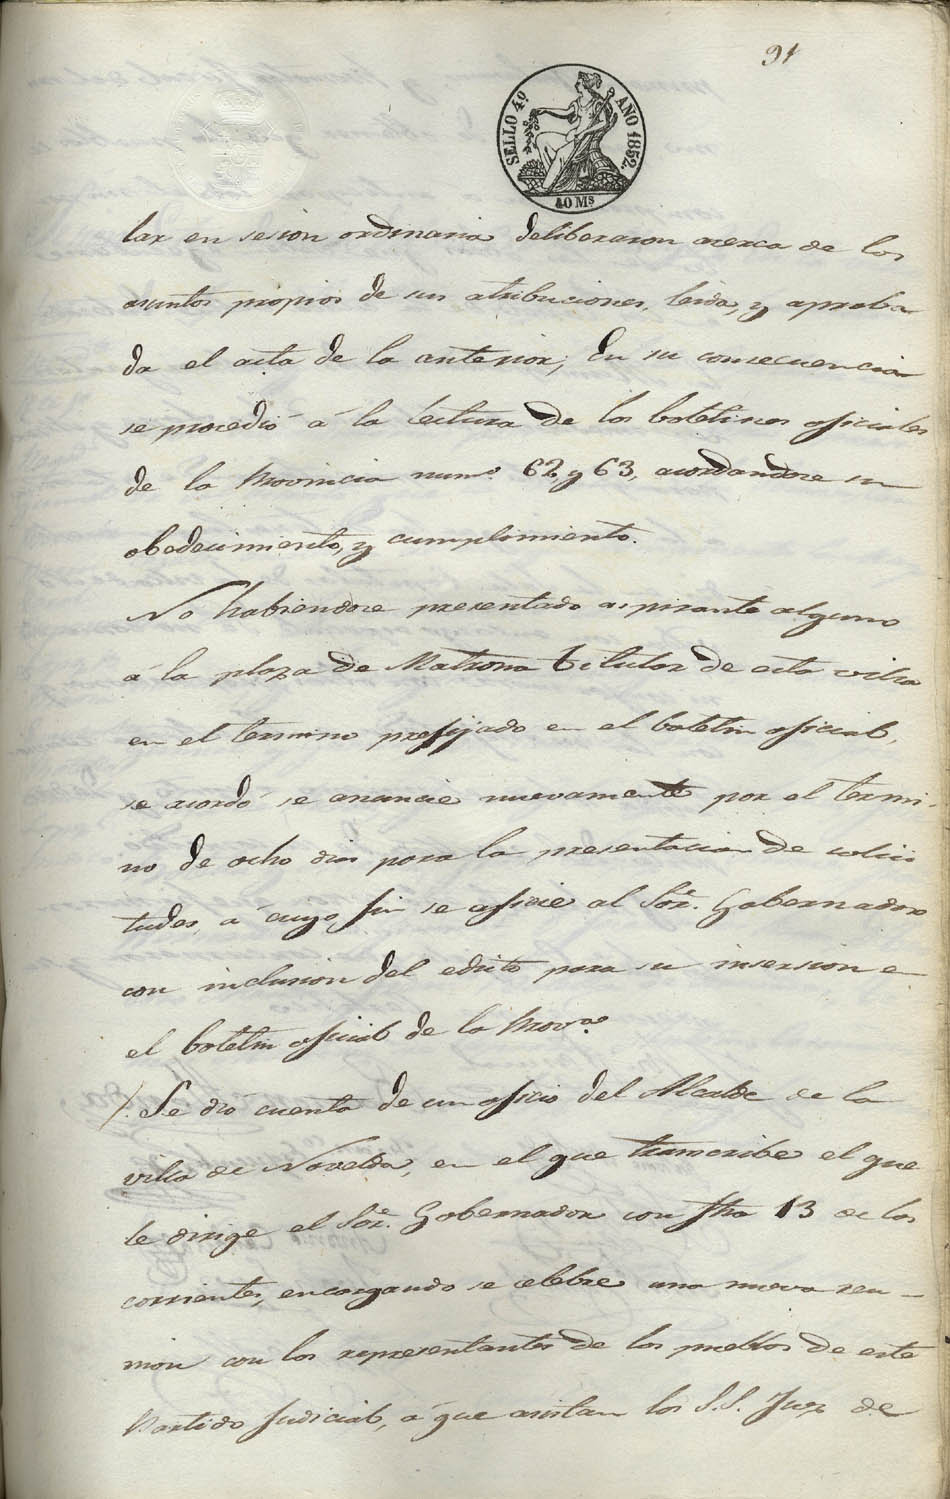 91
SELLO 4º AÑO 1852.
40 Ms
lar en sesion ordinaria deliberaron acerca de los
asuntos propios de sus atribuciones, leida, y aproba
da el acta de la anterior; En su consecuencia
se procedió á la lectura de los boletines oficiales
de la Provincia numº 62 y 63, acordandose su
obedecimiento, y cumplimiento.
No habiendose presentado aspirante alguno
á la plaza de Matrona titular de esta villa
en el termino prefijado en el boletin oficial,
se acordó se anuncie nuevamente por el termi-
no de ocho dias para la presentacion de solici
tudes, á cuyo fin se oficie al Sor. Gobernador
con inclusion del edicto para su insersion e
el boletin oficial de la Provª
/. Se dió cuenta de un oficio del Alcalde de la
villa de Novelda, en el que transcribe el que
le dirige el Sor. Gobernador con fha 13 de los
corrientes, encargando se celebre una nueva reu-
nion con los representantes de los pueblos de este
Partido Judicial, á que asistan los S.S. Juez de